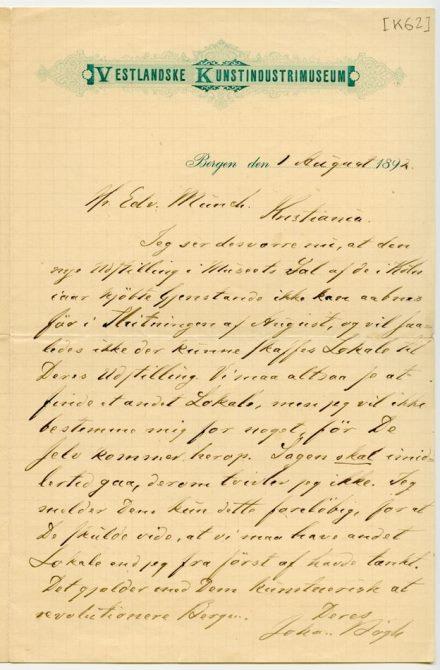 [K62]
VESTLANDSKE KUNSTINDUSTRIMUSEUM
Bergen den 1 August 1892.
Hr. Edv. Munch.
Kristiania.
Jeg ser desværre nu, at den
nye Udstilling i Museets Sal af de i
iaar kjöbte Gjenstande ikke kan aabnes
för i Slutningen af August, og vil saa-
ledes ikke der kunne skaffes Lokale til
Deres Udstilling. Vi maa altsaa se at
finde et andet Lokale, men jeg vil ikke
bestemme mig for noget, för De
selv kommer herop. Sagen skal imid-
lertid gaa, derom tvivler jeg ikke. Jeg
melder Dem kun dette foreløbig, for at
De skulde vide, at vi maa have andet
Lokale end jeg fra först af havde tænkt.
Det gjælder med Dem kunstnerisk at
revolutionere Bergen.
Deres
Johan Bögh